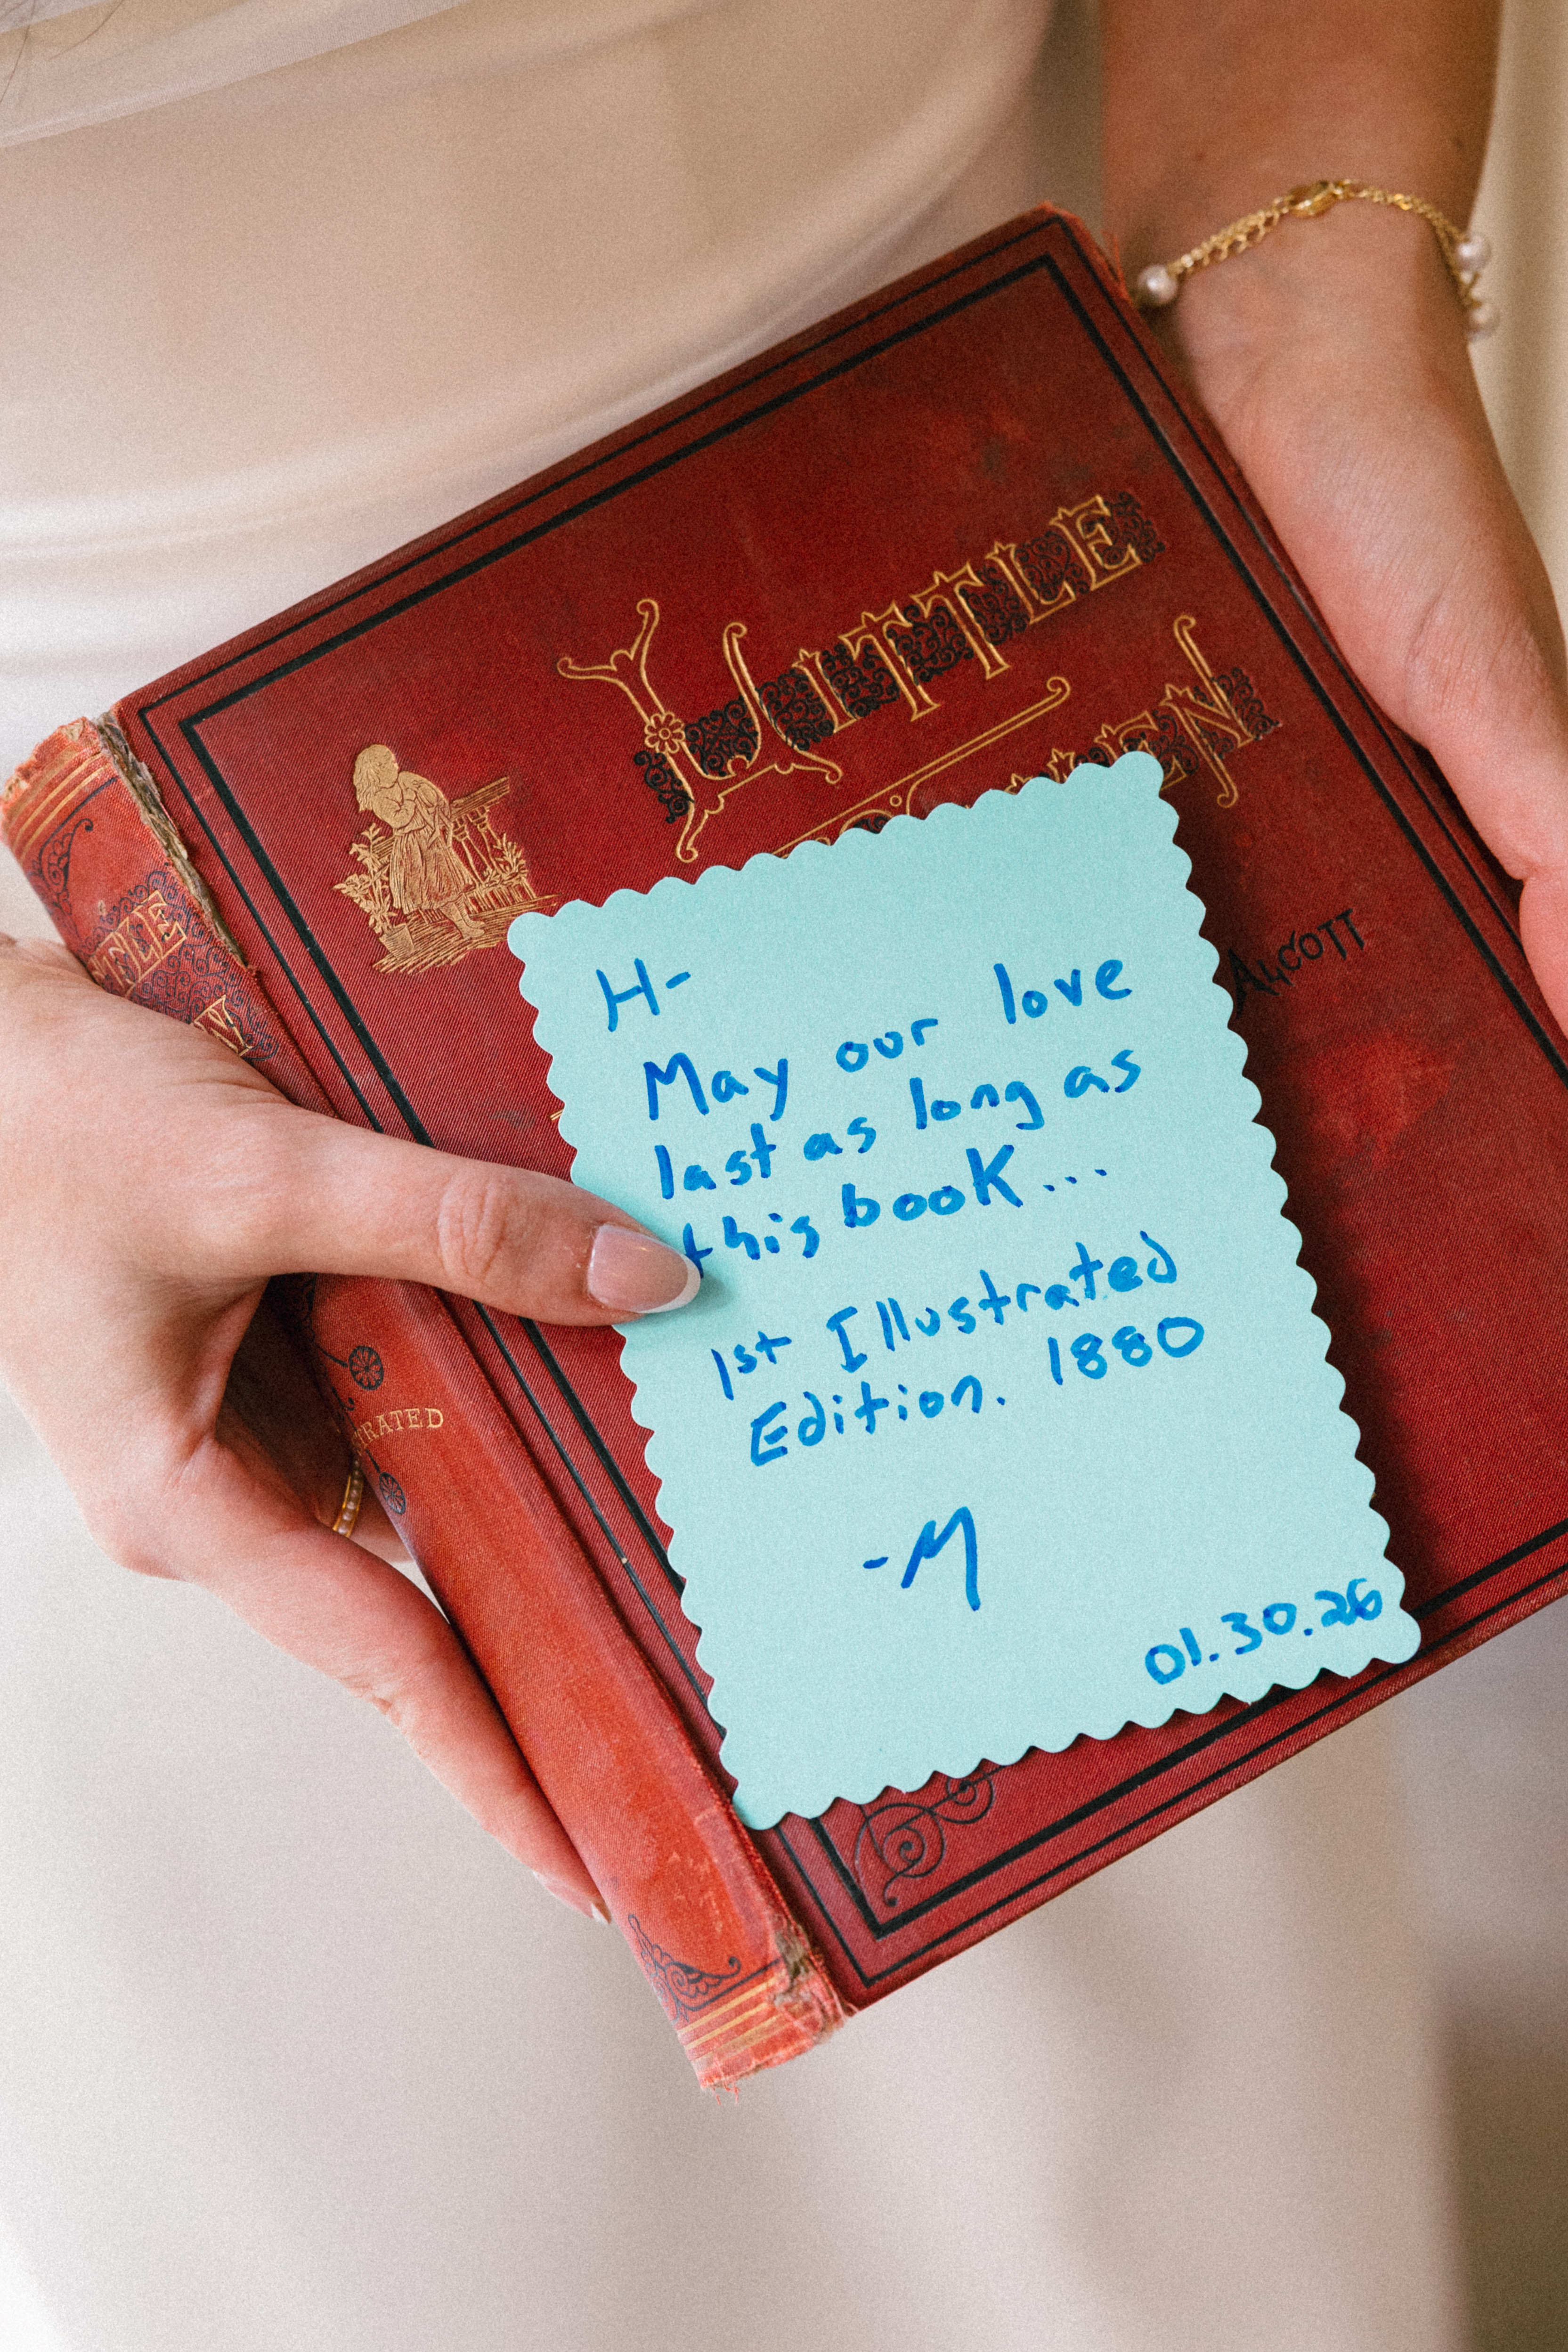 LITTLE
ALCOTT
H-
May our love
last as long as
this book...
1st Illustrated
Edition. 1880
-M
01.30.26